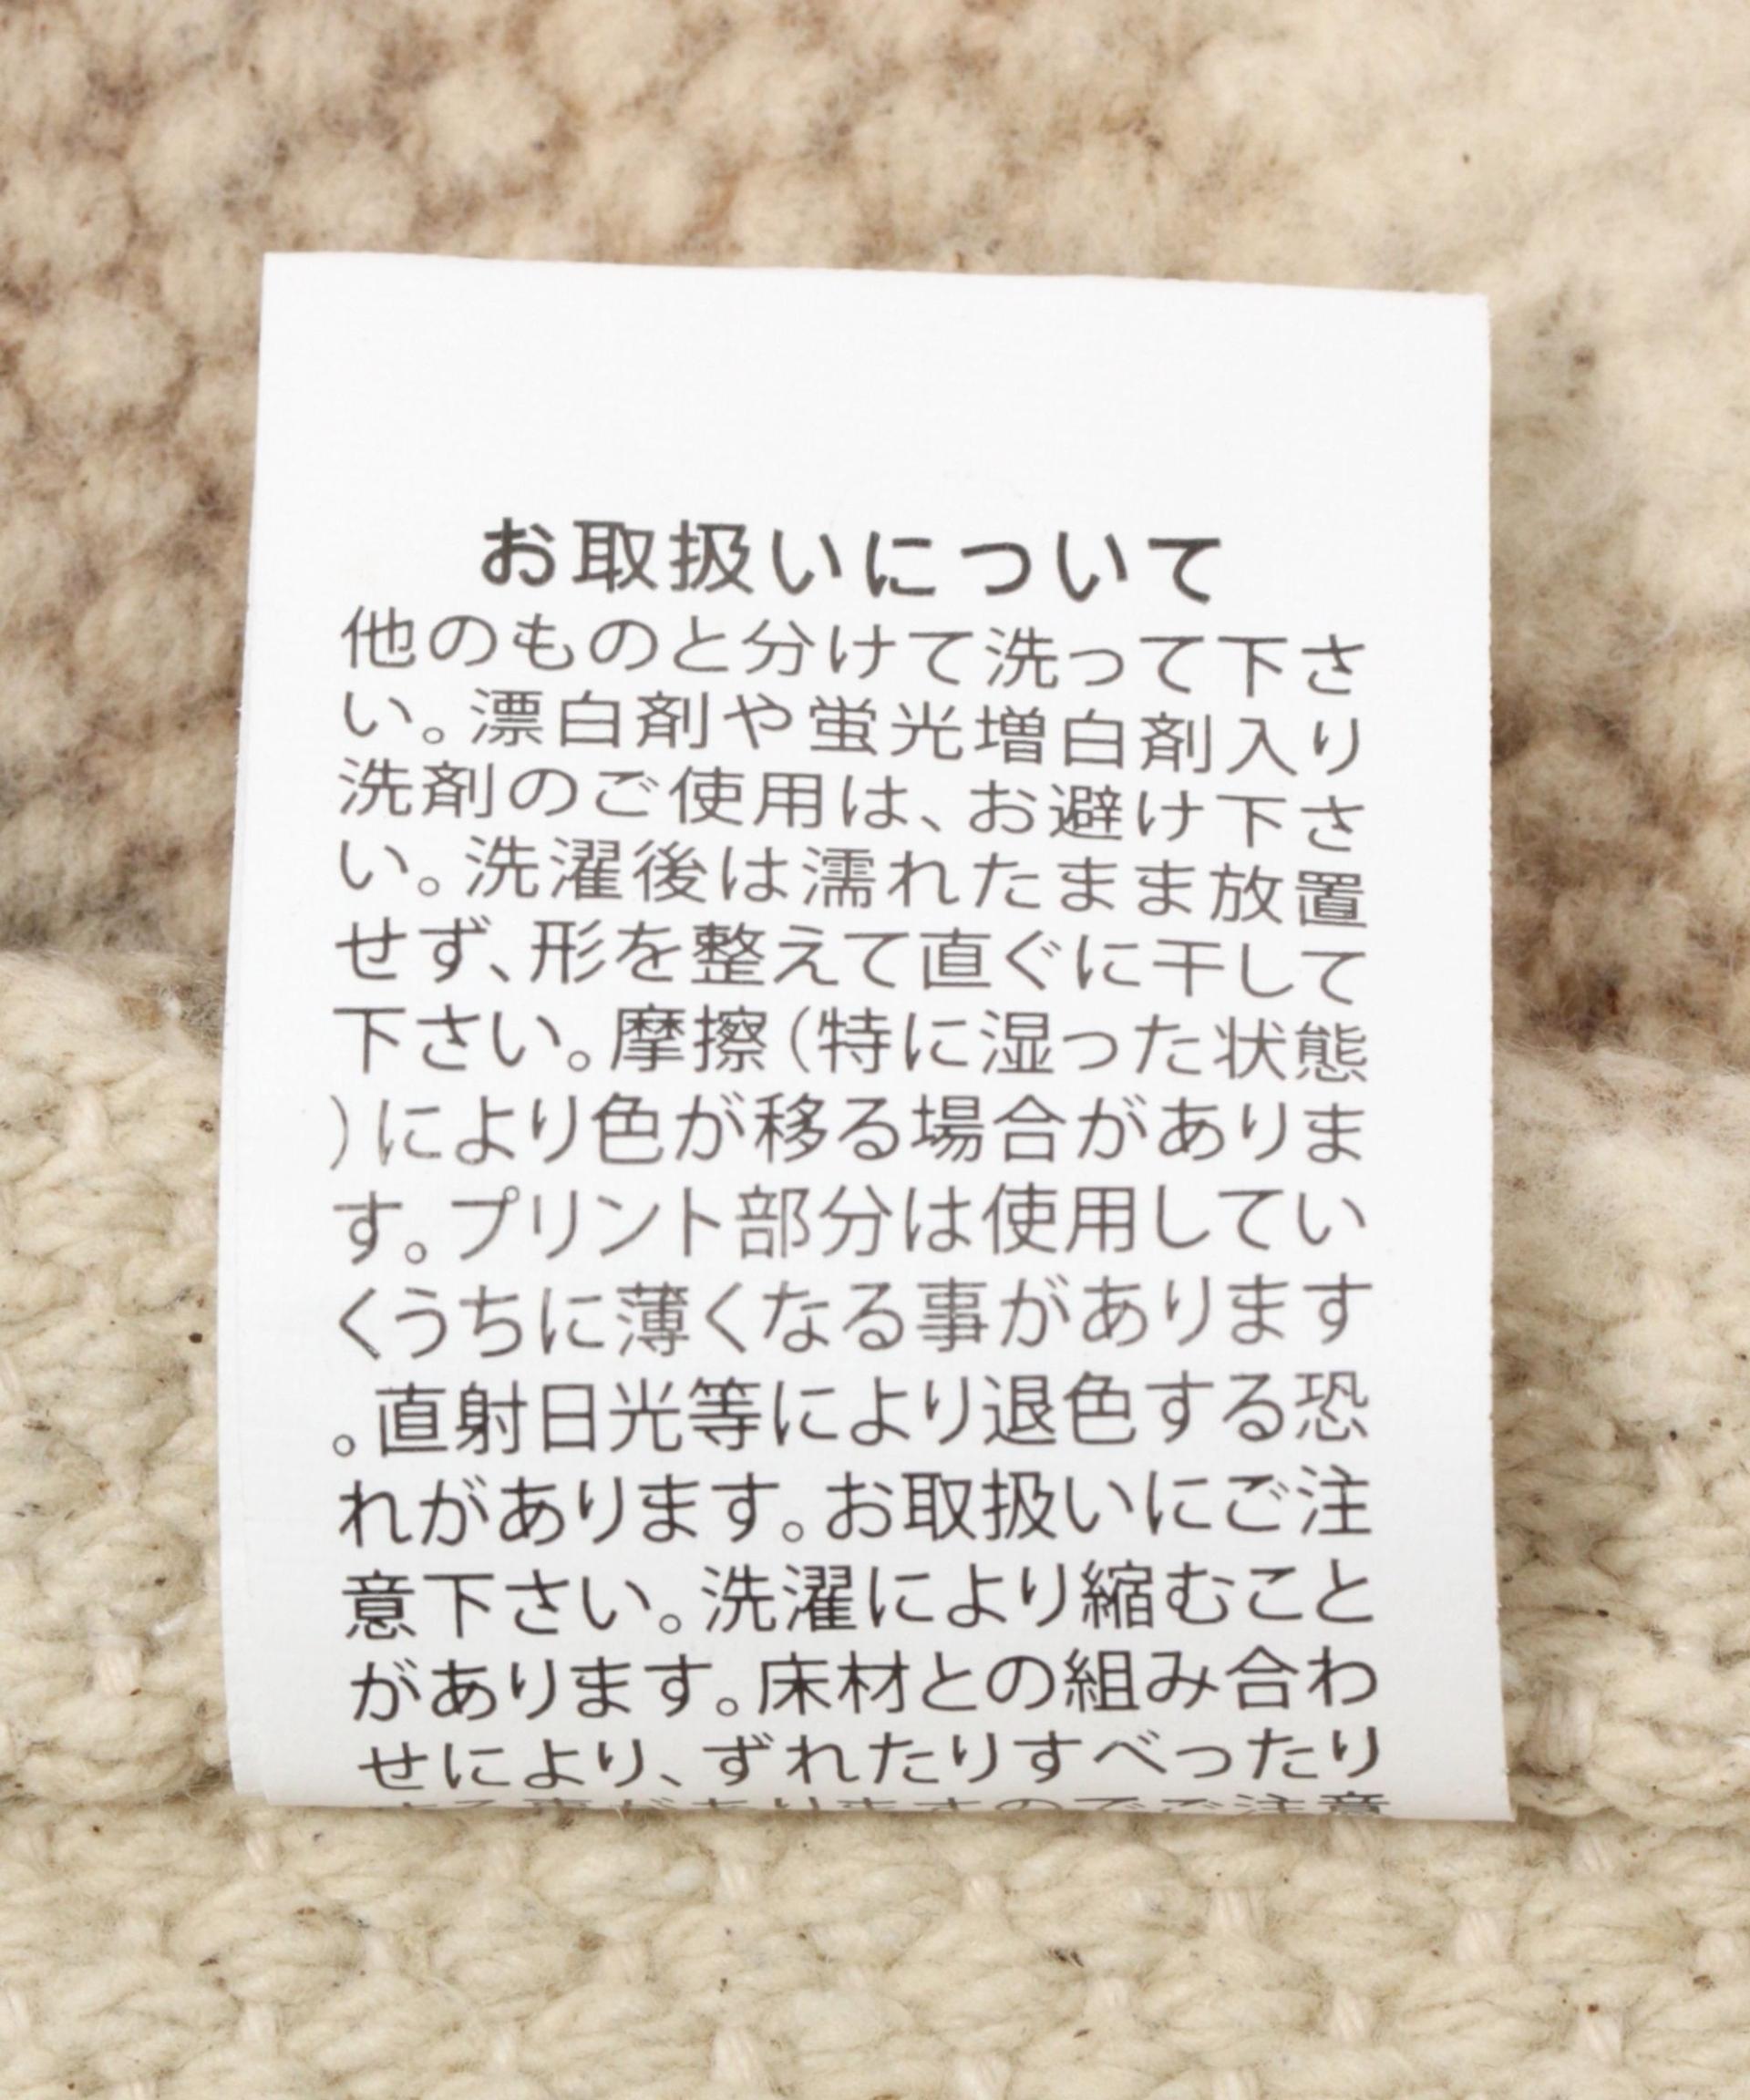 お取扱いについて
他のものと分けて洗って下さ
い。漂白剤や蛍光増白剤入り
洗剤のご使用は、お避け下さ
い。洗濯後は濡れたまま放置
せず、形を整えて直ぐに干して
下さい。摩擦(特に湿った状態
)により色が移る場合がありま
す。プリント部分は使用してい
くうちに薄くなる事があります
。直射日光等により退色する恐
れがあります。お取扱いにご注
意下さい。洗濯により縮むこと
があります。床材との組み合わ
せにより、ずれたりすべったり
する事がありますのでご注意